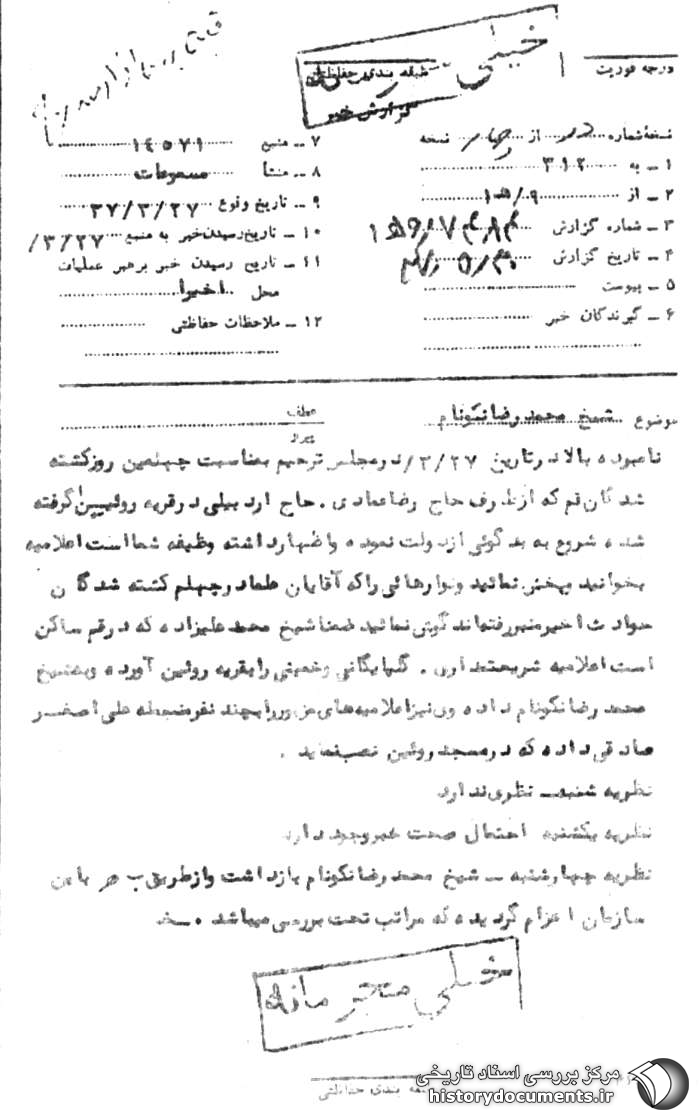 خیلی
درجه فوریت
طبقه بندی حفاظتی
گزارش خبر
نسخه شماره از نسخه
۱ ــ به ۳۱۲
۲ ــ از ۹/
۳ ــ شماره گزارش
۴ ــ تاریخ گزارش
۵ ــ پیوست
۶ ــ گیرندگان خبر
۷ ــ منبع ۱۴۵۷۱
۸ ــ منشأ مسموعات
۹ ــ تاریخ وقوع ۳۷/۳/۲۷
۱۰ ــ تاریخ رسیدن خبر به منبع ۳/۲۷/
۱۱ ــ تاریخ رسیدن خبر برهبر عملیات
محل اخیرا
۱۲ ــ ملاحظات حفاظتی
موضوع شیخ محمد رضا نکونام
عطف
پیرو
نامبوده بالا در تاریخ ۳/۲۷/ در مجلس ترحیم بمناسبت چهلمین روز کشته
شدگان قم که از طرف حاج رضا عمادی . حاج اردبیلی در قریه روئین گرفته
شده شروع به بدگوئی از دولت نموده و اظهار داشته وظیفه شما است اعلامیه
بخوانید و پخش نمائید و نوارهائی را که آقایان علما در چهلم کشته شدگان
حوادث اخیر منبر رفته‌اند گوش نمائید ضمنا شیخ محمد علیزاده که در قم ساکن
است اعلامیه شریعتمداری . گلپایگانی و خمینی را بقریه روئین آورده و به شیخ
محمد رضا نکونام داده وی نیز اعلامیه‌های مزبور را بچند نفر منجمله علی اصغر
صادقی داده که در مسجد روئین نصب نماید .
نظریه شنبه ــ نظری ندارد
نظریه یکشنبه احتمال صحت خبر وجود دارد
نظریه چهارشنبه ــ شیخ محمد رضا نکونام بازداشت و از طریق ب هر باین
سازمان اعزام گردیده که مراتب تحت بررسی میباشد .
خیلی محرمانه
بندی حفاظتی
مرکز بررسی اسناد تاریخی
historydocuments.ir